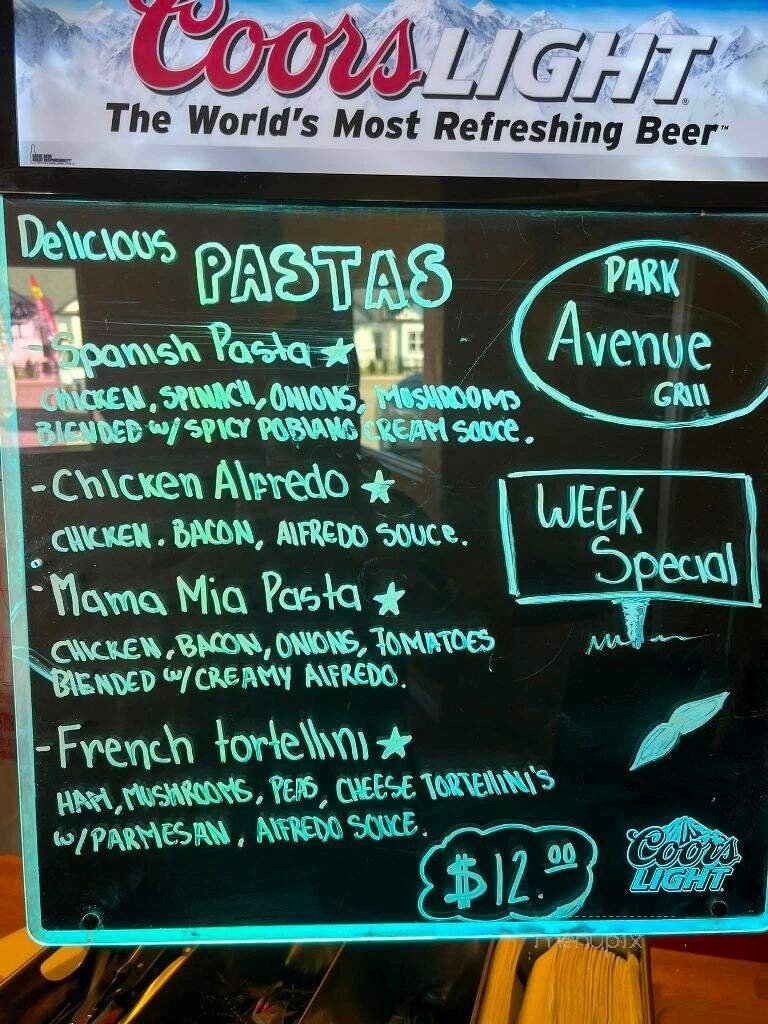 Coors LIGHT
The World's Most Refreshing Beer™
Delicious PASTAS
PARK
Avenue
GRIll
- Spanish Pasta
CHICKEN, SPINACH, ONIONS, MUSHROOMS
BLENDED w/ SPICY POBLANO CREAM SOUCE.
- Chicken Alfredo
CHICKEN. BACON, AlFREDO SOUCE.
WEEK
Special
- Mama Mia Pasta
CHICKEN, BACON, ONIONS, TOMATOES
BlENDED w/ CREAMY AlFREDO.
- French tortellini
HAM, MUSHROOMS, PEAS, CHEESE TORTEllINI'S
w/ PARMESAN, AlFREDO SOUCE.
$12.00
Coors
LIGHT
menupix